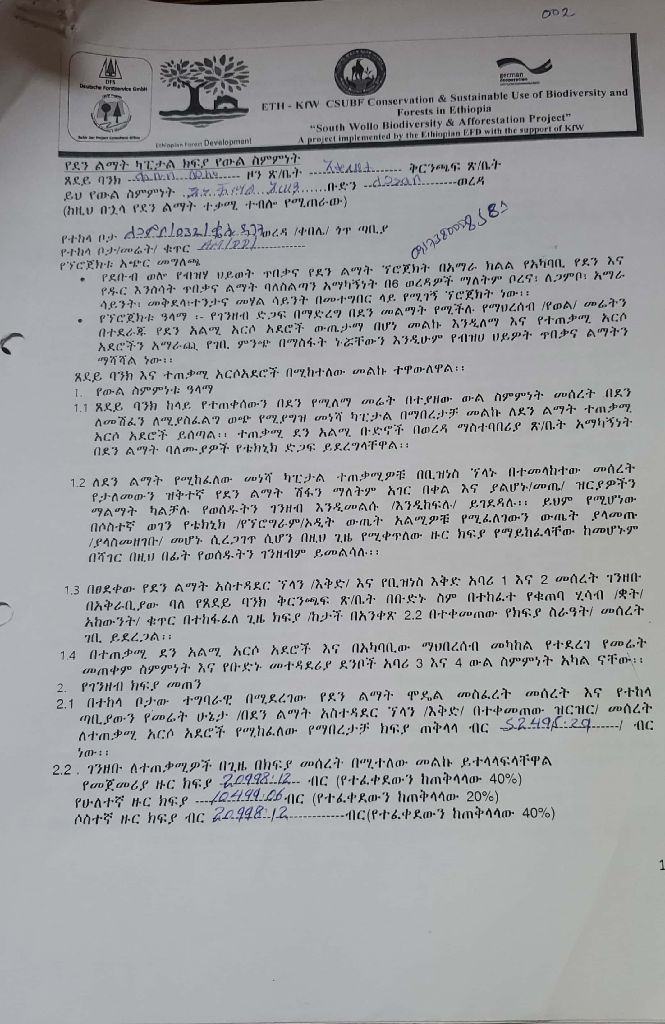 002
DFS
Deutsche Forstservice GmbH
Ethiopian Forest Development
german cooperation
ETH - KfW CSUBF Conservation & Sustainable Use of Biodiversity and
Forests in Ethiopia
"South Wollo Biodiversity & Afforestation Project"
A project implemented by the Ethiopian EFD with the support of KfW
የደን ልማት ካፒታል ክፍያ የውል ስምምነት
ጸደይ ባንክ ዞን ጽ/ቤት ቅርንጫፍ ጽ/ቤት
ይህ የውል ስምምነት ቡድን ወረዳ
(ከዚህ በኋላ የደን ልማት ተቃሚ ተብሎ የሚጠራው)
የተከላ ቦታ ወረዳ /ቀበሌ/ ጎጥ ጣቢያ
የተከላ ቦታ/መሬት/ ቁጥር
የፕሮጀክቱ አጭር መግለጫ
• የደቡብ ወሎ የብዝሃ ህይወት ጥበቃና የደን ልማት ፕሮጀክት በአማራ ክልል የአካባቢ የደን እና
የዱር እንስሳት ጥበቃና ልማት ባለስልጣን አማካኝነት በ6 ወረዳዎች ማለትም ቦረና፣ ለጋምቦ፣ አማራ
ሳይንት፣ መቅደላ፣ተንታና መሃል ሳይንት በመተግበር ላይ የሚገኝ ፕሮጀክት ነው፡፡
• የፕሮጀክቱ ዓላማ :- የገንዘብ ድጋፍ በማድረግ በደን መልማት የሚችሉ የማህበረሰብ /የወል/ መሬትን
በተደራጁ የደን አልሚ አርሶ አደሮች ውጤታማ በሆነ መልኩ እንዲለማ እና የተጠቃሚ አርሶ
አደሮችን አማራጪ የገቢ ምንጭ በማስፋት ኑሯቸውን እንዲሁም የብዝሀ ህይዎት ጥበቃና ልማትን
ማሻሻል ነው፡፡
ጸደይ ባንክ እና ተጠቃሚ አርሶአደሮች በሚከተለው መልኩ ተዋውለዋል፡፡
1. የውል ስምምነቱ ዓላማ
1.1 ጸደይ ባንክ ከላይ የተጠቀሱውን በደን የሚለማ መሬት በተያዘው ውል ስምምነት መሰረት በደን
ለመሸፈን ለሚያስፈልግ ወጭ የሚያግዝ መነሻ ካፒታል በማበረታቻ መልኩ ለደን ልማት ተጠቃሚ
አርሶ አደሮች ይሰጣል፡፡ ተጠቃሚ ደን አልሚ ቡድኖች በወረዳ ማስተባበሪያ ጽ/ቤት አማካኝነት
በደን ልማት ባለሙያዎች የቴክኒክ ድጋፍ ይደረግላቸዋል፡፡
1.2 ለደን ልማት የሚከፈለው መነሻ ካፒታል ተጠቃሚዎቹ በቢዝነስ ፕላኑ በተመላከተው መሰረት
የታለመውን ዝቅተኛ የደን ልማት ሽፋን ማለትም አገር በቀል እና ያልሆኑ/መጤ/ ዝርያዎችን
ማልማት ካልቻሉ የወሰዱትን ገንዘብ እንዲመልሱ /እንዲከፍሉ/ ይገደዳሉ፡፡ ይህም የሚሆነው
በሶስተኛ ወገን የቴክኒክ /የፕሮግራም/ኦዲት ውጤት አልሚዎቹ የሚፈለገውን ውጤት ያላመጡ
/ያላስመዘገቡ/ መሆኑ ሲረጋገጥ ሲሆን በዚህ ጊዜ የሚቀጥለው ዙር ክፍያ የማይከፈላቸው ከመሆኑም
በሻገር በዚህ በፊት የወሰዱትን ገንዘብም ይመልሳሉ፡፡
1.3 በፀደቀው የደን ልማት አስተዳደር ፕላን /እቅድ/ እና የቢዝነስ እቅድ አባሪ 1 እና 2 መሰረት ገንዘቡ
በአቅራቢያው ባለ የጸደይ ባንክ ቅርንጫፍ ጽ/ቤት በቡድኑ ስም በተከፈተ የቁጠባ ሂሳብ /ቋት/
አከውንት/ ቁጥር በተከፋፈለ ጊዜ ክፍያ /ከታች በአንቀጽ 2.2 በተቀመጠው የክፍያ ስራዓት/ መሰረት
ገቢ ይደረጋል፡፡
1.4 በተጠቃሚ ደን አልሚ አርሶ አደሮች እና በአካባቢው ማህበረሰብ መካከል የተደረገ የመሬት
መጠቀም ስምምነት እና የቡድኑ መተዳደሪያ ደንቦች አባሪ 3 እና 4 ውል ስምምነት አካል ናቸው፡፡
2. የገንዘብ ክፍያ መጠን
2.1 በተከላ ቦታው ተግባራዊ በሚደረገው የደን ልማት ሞዴል መስፈረት መሰረት እና የተከላ
ጣቢያውን የመሬት ሁኔታ /በደን ልማት አስተዳደር ፕላን /እቅድ/ በተቀመጠው ዝርዝር/ መሰረት
ለተጠቃሚ አርሶ አደሮች የሚከፈለው የማበረታቻ ክፍያ ጠቅላላ ብር 52495.29 / ብር
ነው፡፡
2.2 . ገንዘቡ ለተጠቃሚዎች በጊዜ በክፍያ መሰረት በሚተለው መልኩ ይተላላፍላቸዋል
የመጀመሪያ ዙር ክፍያ 20998.12 ብር (የተፈቀደውን ከጠቅላላው 40%)
የሁለተኛ ዙር ክፍያ 10499.06 ብር (የተፈቀደውን ከጠቅላላው 20%)
ሶስተኛ ዙር ክፍያ ብር 20998.12 ብር(የተፈቀደውን ከጠቅላላው 40%)
1